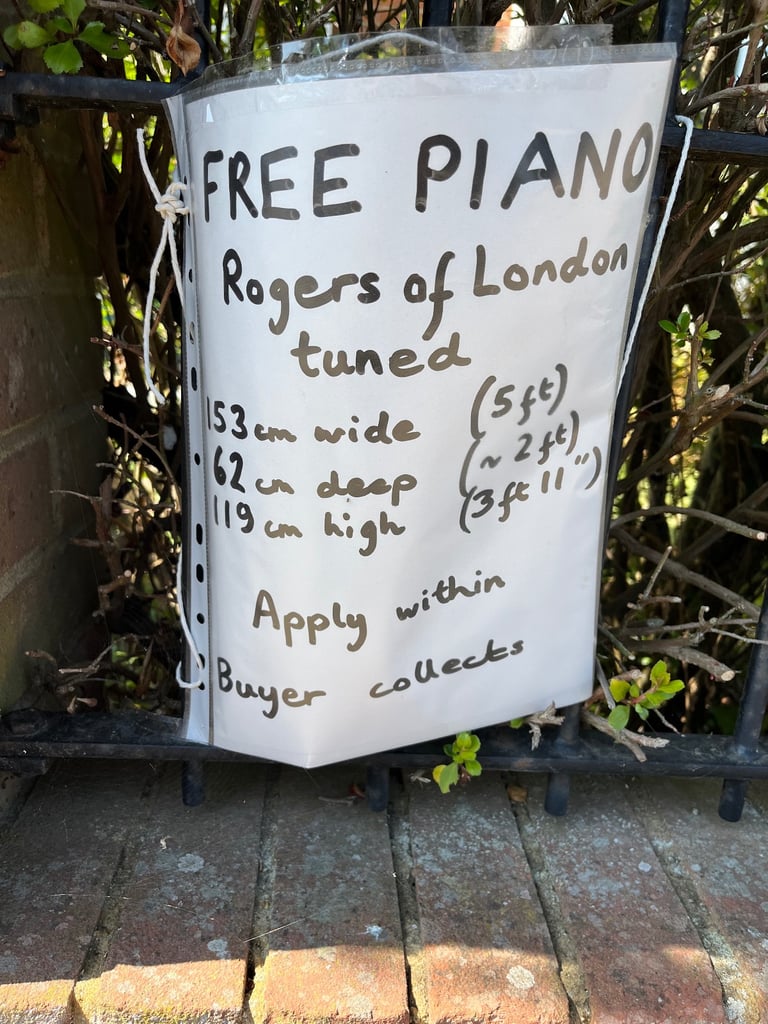 FREE PIANO
Rogers of London
tuned
153 cm wide (5ft)
62 cm deep (~ 2 ft)
119 cm high (3ft 11")
Apply within
Buyer collects